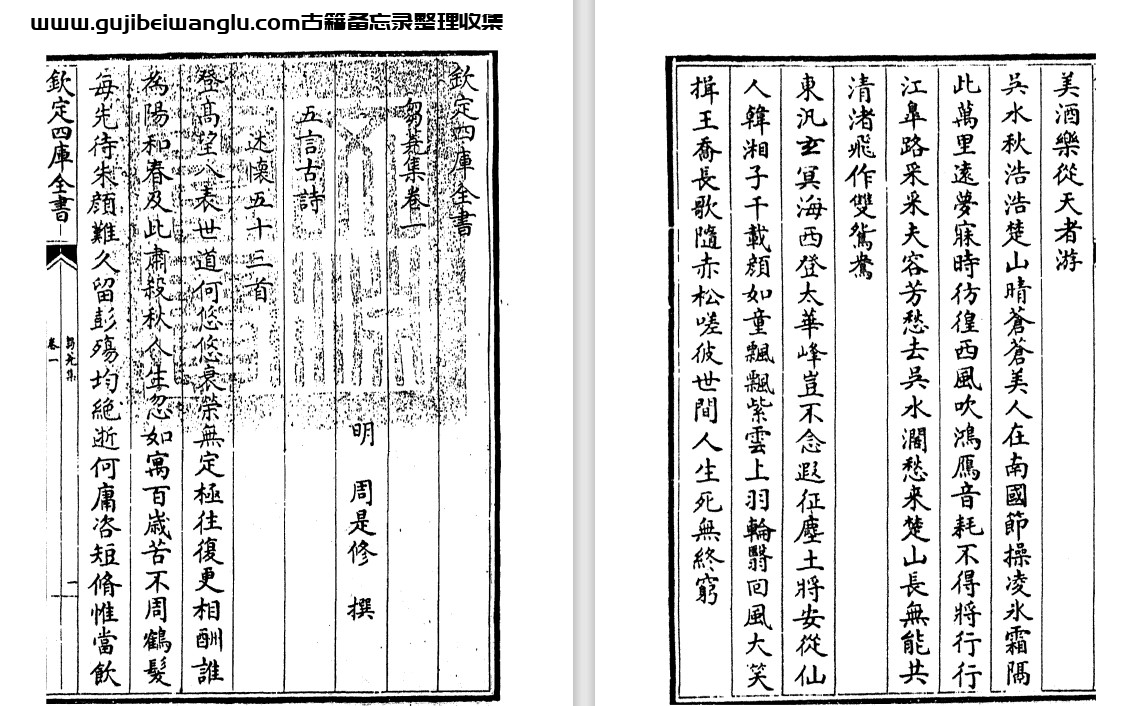 www.gujibeiwanglu.com古籍备忘录整理收集
欽定四庫全書
芻蕘集卷一
明 周是修 撰
五言古詩
述懷五十三首
登髙望八表世道何悠悠衰榮無定極往復更相酬誰
為陽和春及此肅殺秋人生忽如寓百歲苦不周鶴髮
每先待朱顔難久留彭殤均絶逝何庸咨短脩惟當飲
欽定四庫全書
芻蕘集
卷一
一
美酒樂從天者游
吳水秋浩浩楚山晴蒼蒼美人在南國節操凌氷霜隔
此萬里遠夢寐時彷徨西風吹鴻鴈音耗不得將行行
江臯路采采夫容芳愁去吳水濶愁来楚山長無能共
清渚飛作雙鴛鴦
東汎玄冥海西登太華峰豈不念遐征塵土將安從仙
人韓湘子千載顔如童飄飄紫雲上羽輪翳回風大笑
揖王喬長歌隨赤松嗟彼世間人生死無終窮